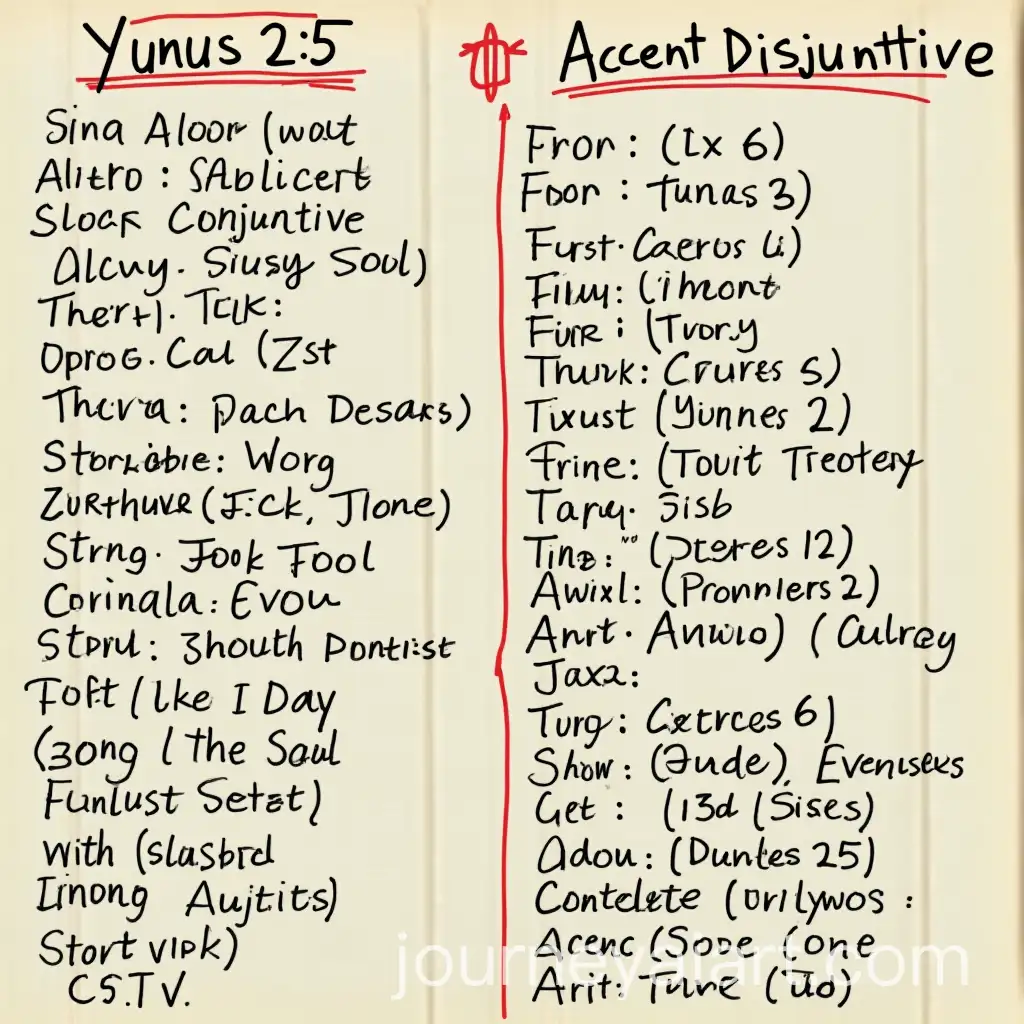 Yunus 2:5
Sina Aloor (wout
Alitro : SAblicert
Sloak Conjuntive
Alcuy. Siusy Soul)
Therti. TCLK:
Oprog. Cal (Zst
Thcvra: Dach Desaks)
Storkibie: Worg
Zurthuve (F.ck, Jlone)
Strng. Jook Fool
Corinala: Evou
Stpru: 3houth Pontist
Foft (lke I Day
(3ong ( The Saul
Funlust Setst)
with (slasbrd
Iinong Aujtits)
Stort vipk)
CS.TV.
Accent Disjunttive
Fron : (Lx 6)
Foor : Tunas 3)
Furst. Caerus Li)
Filuy: (ihront
Fure : (Tvory
Thuik: Crures S)
Tixust (Yiunnes 2)
Frine: (Touit Treotery
Tapy. Sisb
Tine: (Dteres 12)
Awixl: (Pronnlers 2)
Anrt. Anwio) ( Culrey
Jaxz:
Turg: Cxtrces 6)
Show: (Jude), Evenuseks
Get : (13d (Sises)
Adou: (Duntes 25)
Contelete (orilywos :
Acenc (Sope (one
Arit: Ture (Tio)
journeyaiart.com